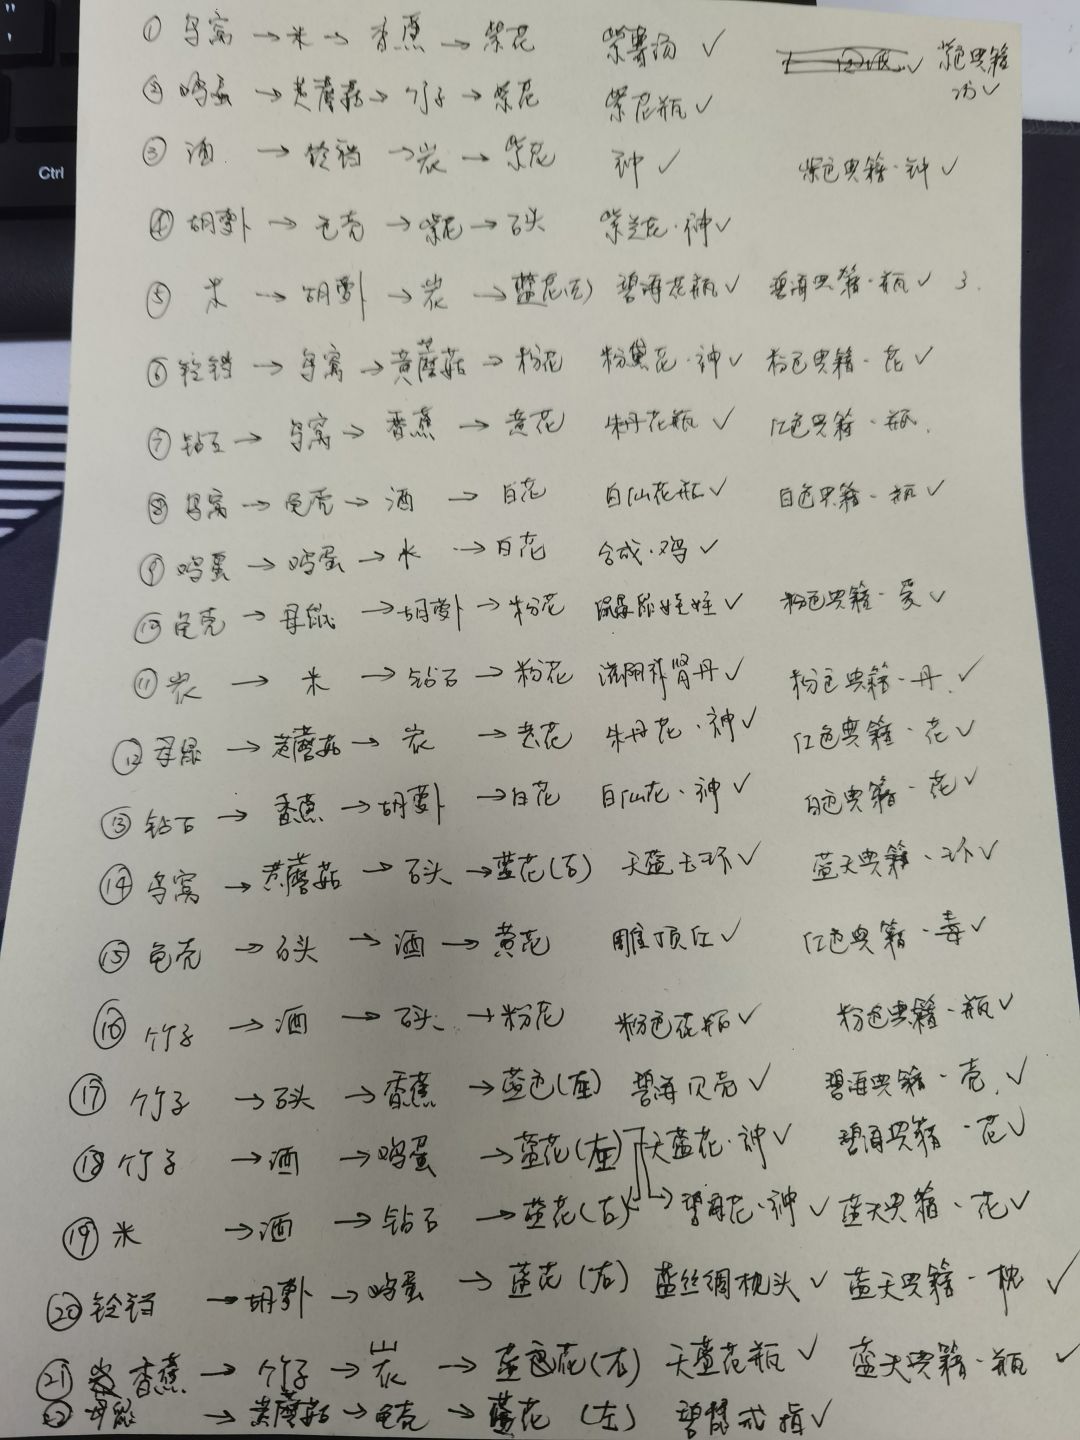 Ctrl
① 鸟窝 → 米 → 香蕉 → 紫花 紫薯汤 ✓ 紫色典籍 汤 ✓
② 鸡蛋 → 黄蘑菇 → 竹子 → 紫花 紫花瓶 ✓
③ 酒 → 铃铛 → 炭 → 紫花 钟 ✓ 紫色典籍·钟 ✓
④ 胡萝卜 → 龟壳 → 紫花 → 石头 紫兰花·神 ✓
⑤ 米 → 胡萝卜 → 炭 → 蓝花(左) 碧海花瓶 ✓ 碧海典籍·瓶 ✓ 3.
⑥ 铃铛 → 鸟窝 → 黄蘑菇 → 粉花 粉黛花·神 ✓ 粉色典籍·花 ✓
⑦ 钻石 → 鸟窝 → 香蕉 → 黄花 朱丹花瓶 ✓ 红色典籍·瓶.
⑧ 鸟窝 → 龟壳 → 酒 → 白花 白仙花瓶 ✓ 白色典籍·瓶 ✓
⑨ 鸡蛋 → 鸡蛋 → 水 → 白花 合成·鸡 ✓
⑩ 龟壳 → → 胡萝卜 → 粉花 娃娃 ✓ 粉色典籍·爱 ✓
⑪ 炭 → 米 → 钻石 → 粉花 滋阴补肾丹 ✓ 粉色典籍·丹. ✓
⑫ → 黄蘑菇 → 炭 → 黄花 朱丹花·神 ✓ 红色典籍·花 ✓
⑬ 钻石 → 香蕉 → 胡萝卜 → 白花 白仙花·神 ✓ 白色典籍·花 ✓
⑭ 鸟窝 → 黄蘑菇 → 石头 → 蓝花(右) 天蓝玉环 ✓ 蓝天典籍·环 ✓
⑮ 龟壳 → 石头 → 酒 → 黄花 顶红 ✓ 红色典籍·毒 ✓
⑯ 竹子 → 酒 → 石头 → 粉花 粉色花瓶 ✓ 粉色典籍·瓶 ✓
⑰ 竹子 → 石头 → 香蕉 → 蓝色(左) 碧海贝壳 ✓ 碧海典籍·壳. ✓
⑱ 竹子 → 酒 → 鸡蛋 → 蓝花(左) 天蓝花·神 ✓ 碧海典籍·花 ✓
⑲ 米 → 酒 → 钻石 → 蓝花(右) 碧海花·神 ✓ 蓝天典籍·花 ✓
⑳ 铃铛 → 胡萝卜 → 鸡蛋 → 蓝花(右) 蓝丝绸枕头 ✓ 蓝天典籍·枕 ✓
㉑ 香蕉 → 竹子 → 炭 → 蓝色花(右) 天蓝花瓶 ✓ 蓝天典籍·瓶 ✓
→ 黄蘑菇 → 龟壳 → 蓝花 (左) 戒指 ✓